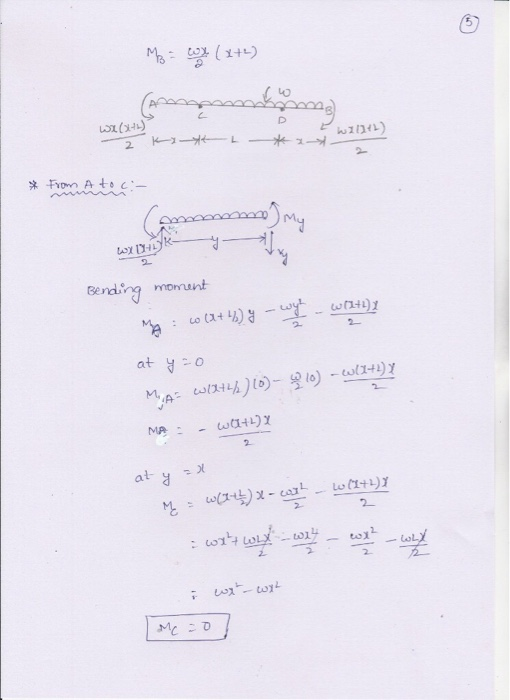 5
M_B = ωx/2 (x+L)
A C ω D B
ωx(x+L)/2 x L x ωx(x+L)/2
* From A to C :-
M_y
ωx(x+L)/2 y x_y
Bending moment
M_A : ω(x+L/2)y - ωy²/2 - ω(x+L)x/2
at y=0
M_yA = ω(x+L/2)(0) - ω/2(0) - ω(x+L)x/2
MA = - ω(x+L)x/2
at y = x
M_C = ω(x+L/2)x - ωx²/2 - ω(x+L)x/2
= ωx² + ωLx/2 - ωx²/2 - ωx²/2 - ωLx/2
= ωx² - ωx²
M_C = 0